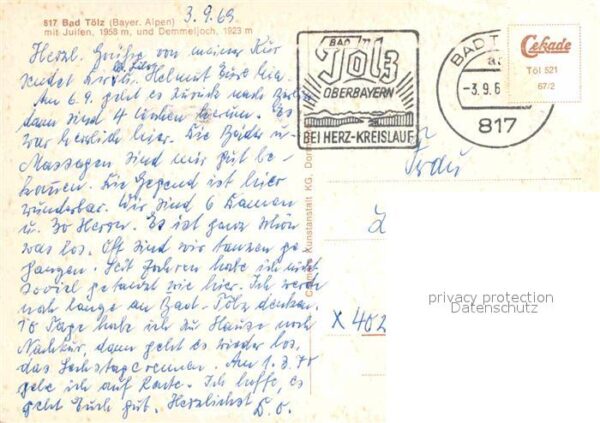 3.9.69
817 Bad Tölz (Bayer. Alpen)
mit Juifen, 1958 m, und Demmeljoch, 1923 m
Herzl. Grüße von meiner Kur
sendet Helmut
Am 6.9. geht es zurück nach
dann sind 4 Wochen herum. Es
war herrlich hier. Die Bäder u.
Massagen sind mir gut be-
kommen. Die Gegend ist hier
wunderbar. Wir sind 6 Damen
u. 30 Herren. Es ist ganz schön
was los. Oft sind wir tanzen ge-
gangen. Seit Jahren habe ich nicht
soviel getanzt wie hier. Ich werde
noch lange an Bad-Tölz denken.
10 Tage habe ich zu Hause noch
Nachkur, dann geht es wieder los,
das Sechstagerennen. Am 1.3.70
gehe ich auf Rente. Ich hoffe, es
geht Euch gut. Herzlichst
BAD
Tölz
OBERBAYERN
BEI HERZ-KREISLAUF
BAD T
-3.9.6
817
Cekade
Töl 521
67/2
Kunstanstalt KG, Dor
Frau
X 402
privacy protection
Datenschutz